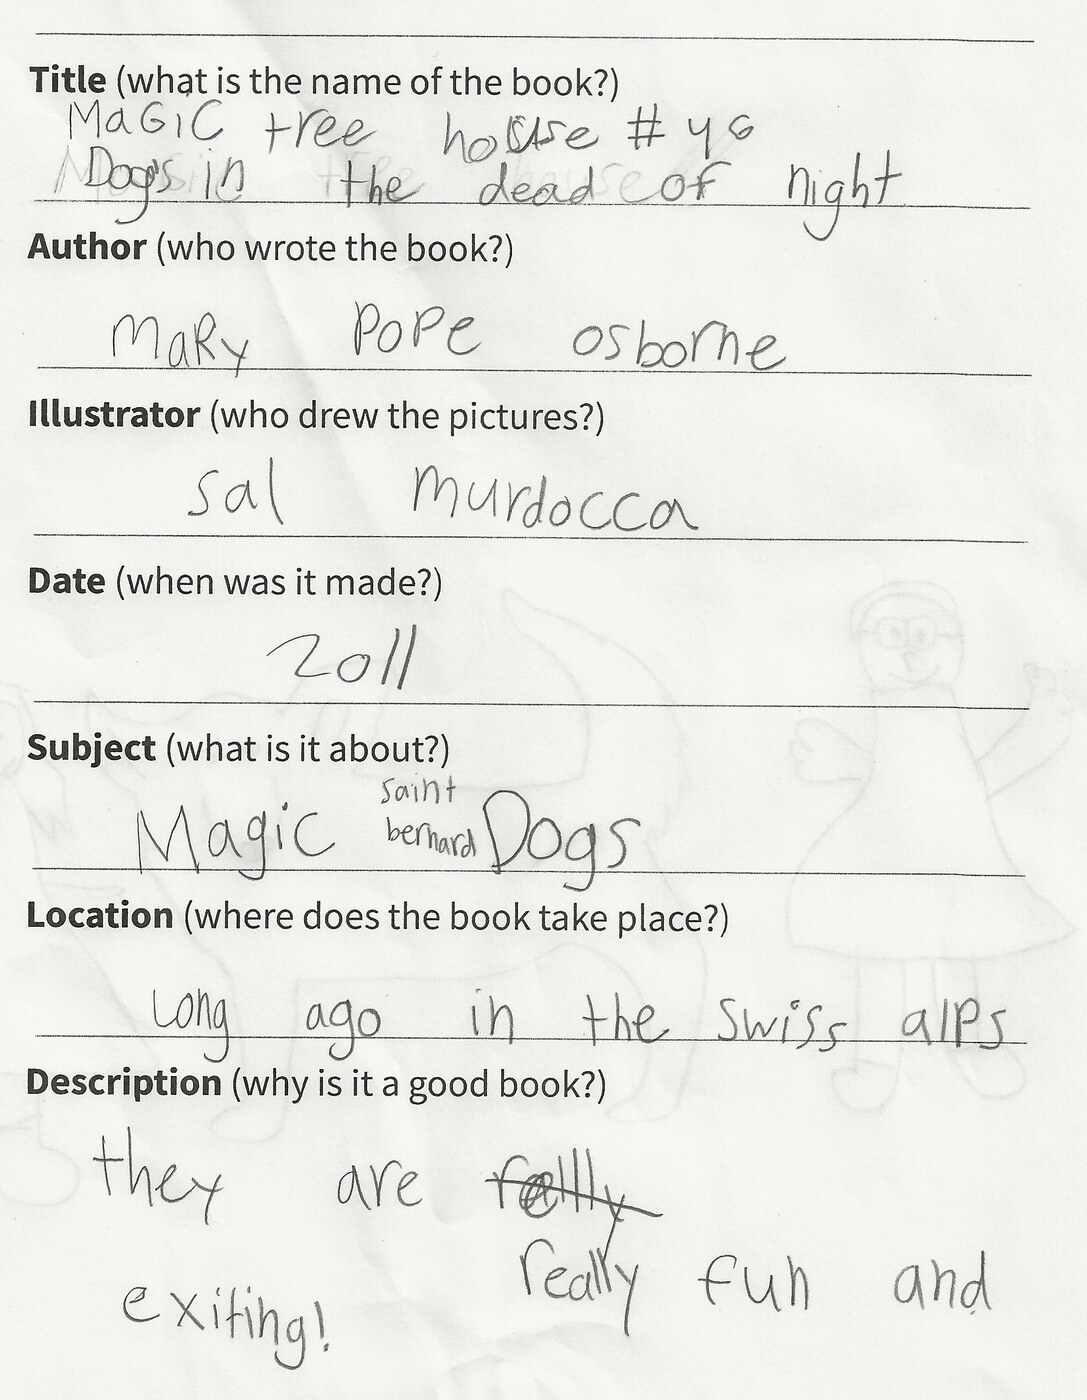 Title (what is the name of the book?)
MaGiC tree house # 46
Dogs in the dead of night
Author (who wrote the book?)
MaRy PoPe osborne
Illustrator (who drew the pictures?)
sal murdocca
Date (when was it made?)
2011
Subject (what is it about?)
Magic saint bernard Dogs
Location (where does the book take place?)
Long ago in the swiss alps
Description (why is it a good book?)
they are
really fun and
exiting!